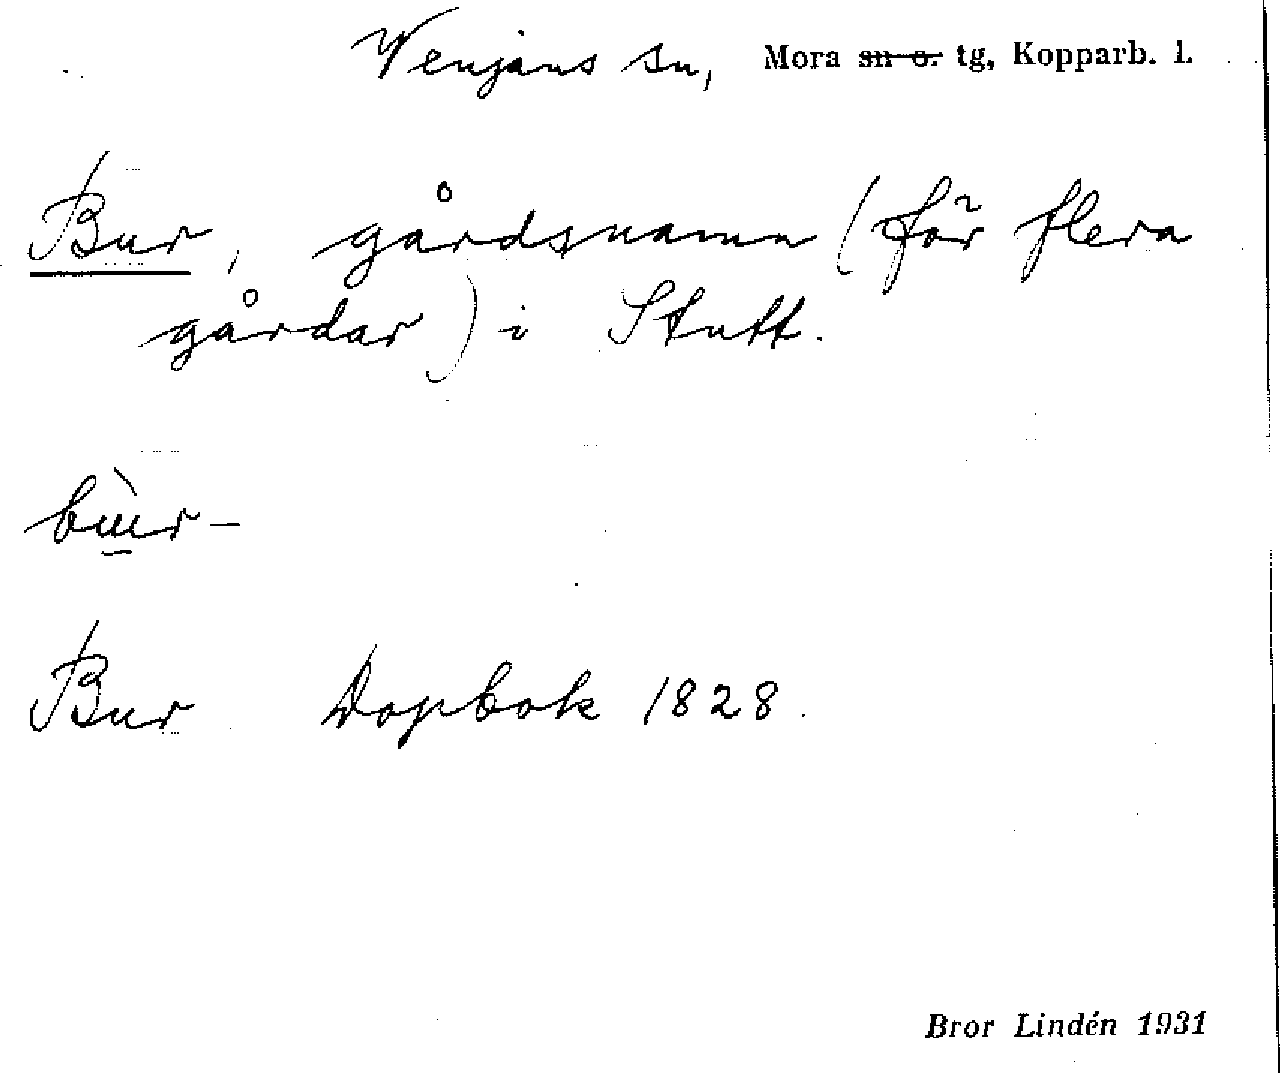 Venjans sn, Mora sn o. tg, Kopparb. l.
Bur, gårdsnamn (för flera
gårdar) i Stutt.
Bur Dopbok 1828.
Bror Lindén 1931